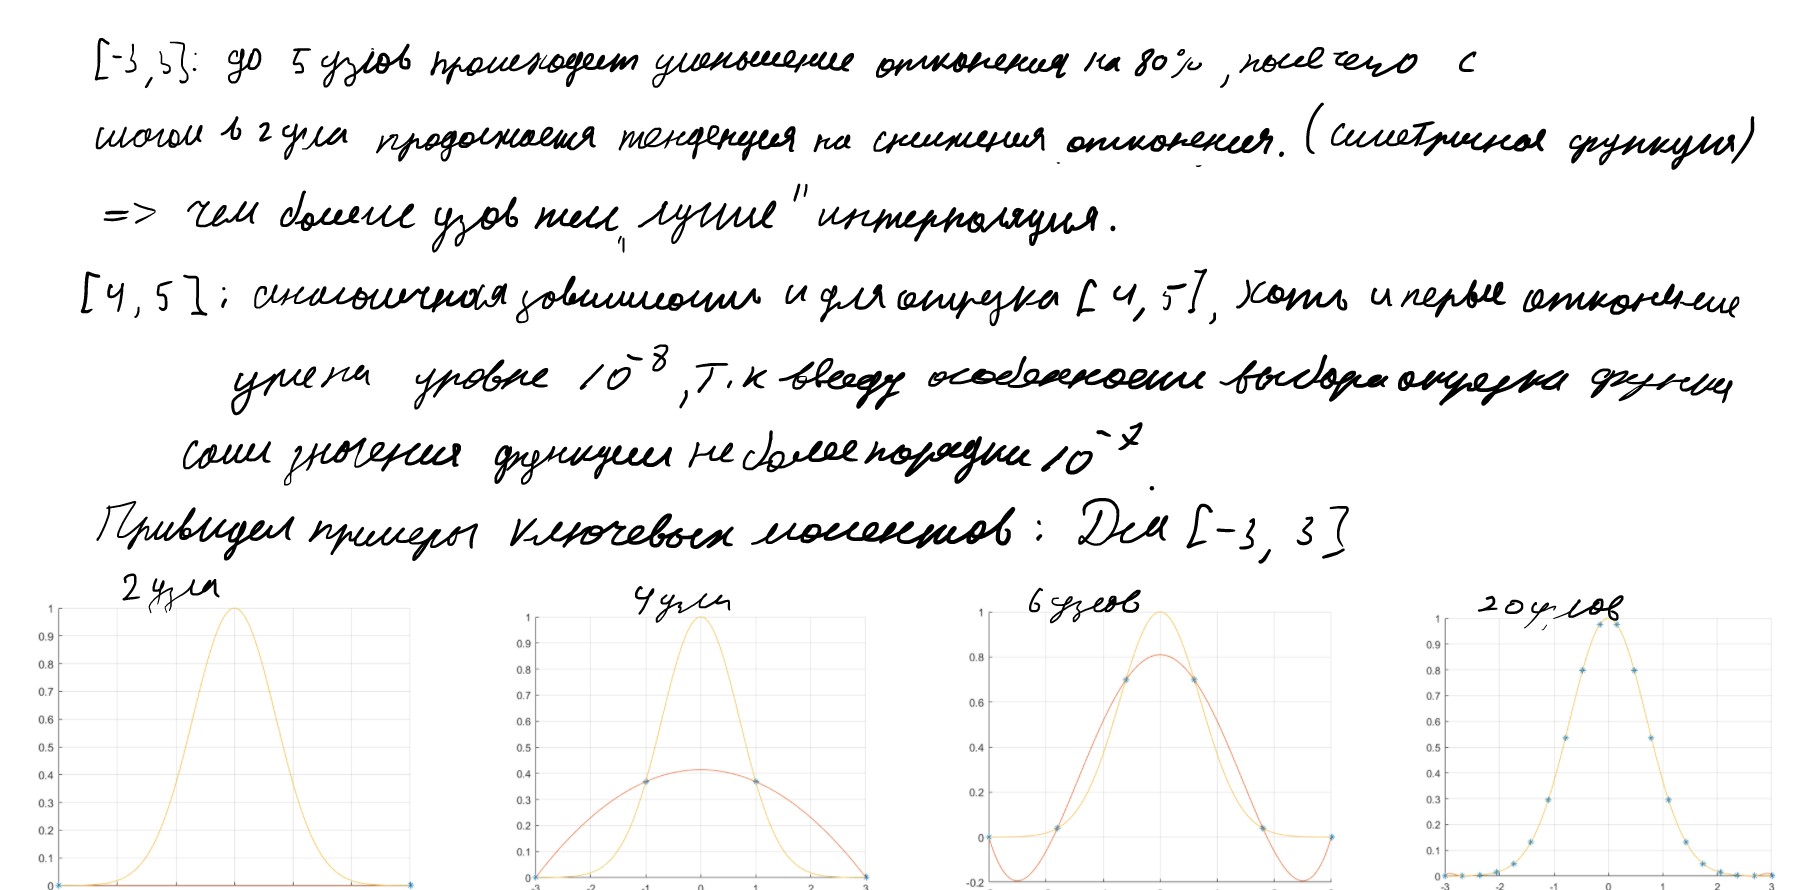 [-3,3]: до 5 узлов происходит уменьшение отклонения на 80%, после чего с
шагом в 2 узла продолжается тенденция на снижения отклонения. (симетричная функция)
=> чем больше узлов тем „лучше" интерполяция.
[4, 5]: аналогичная зависимость и для отрезка [4, 5], хоть и первые отклонение
уже на уровне 10⁻⁸, т.к ввиду особенности выбора отрезка функции
сами значения функции не более порядка 10⁻⁷.
Приведем примеры ключевых моментов: Для [-3, 3]
2 узла 4 узла 6 узлов 20 узлов
1 0.9 0.8 0.7 0.6 0.5 0.4 0.3 0.2 0.1 0
1 0.9 0.8 0.7 0.6 0.5 0.4 0.3 0.2 0.1 0
-3 -2 -1 0 1 2 3
1 0.8 0.6 0.4 0.2 0 -0.2
1 0.9 0.8 0.7 0.6 0.5 0.4 0.3 0.2 0.1 0
-3 -2 -1 0 1 2 3